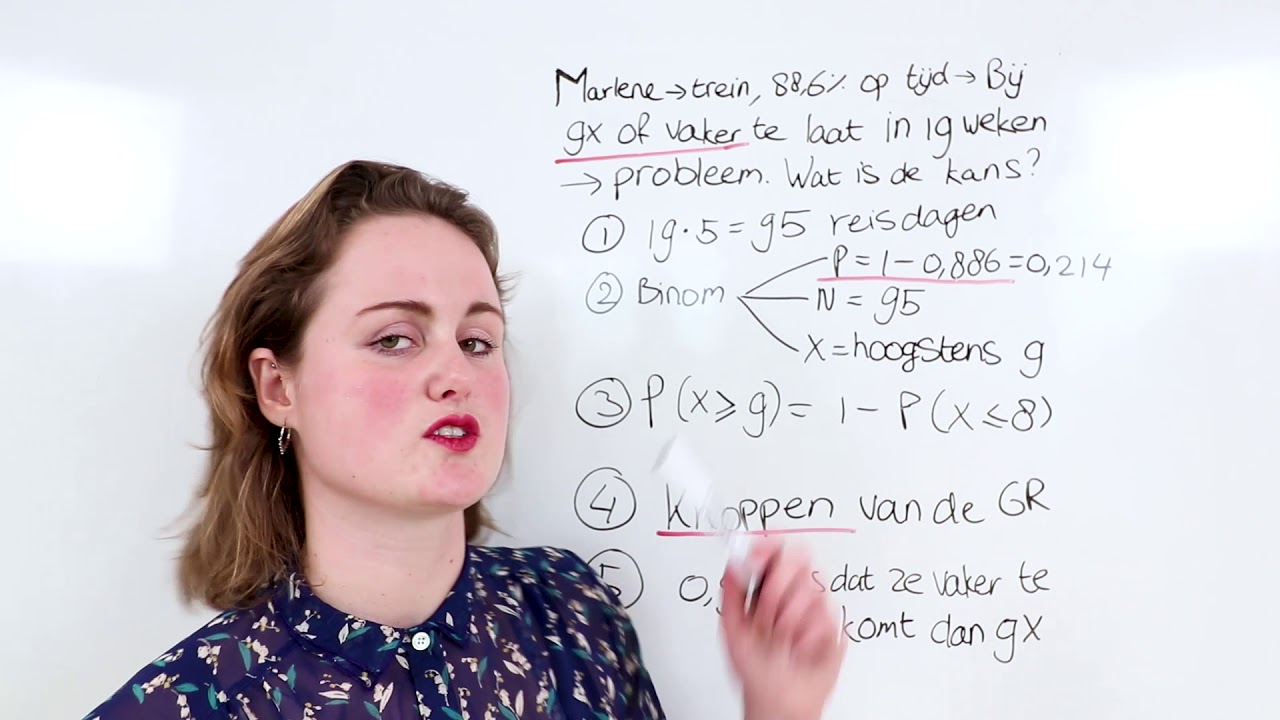 Marlene → trein, 88,6% op tijd → Bij
9x of vaker te laat in 19 weken
→ probleem. Wat is de kans?
① 19·5 = 95 reisdagen
② Binom
P = 1 - 0,886 = 0,214
N = 95
X = hoogstens 9
③ P(X ≥ 9) = 1 - P(X ≤ 8)
④ Knoppen van de GR
⑤ 0, dat ze vaker te
komt dan 9x